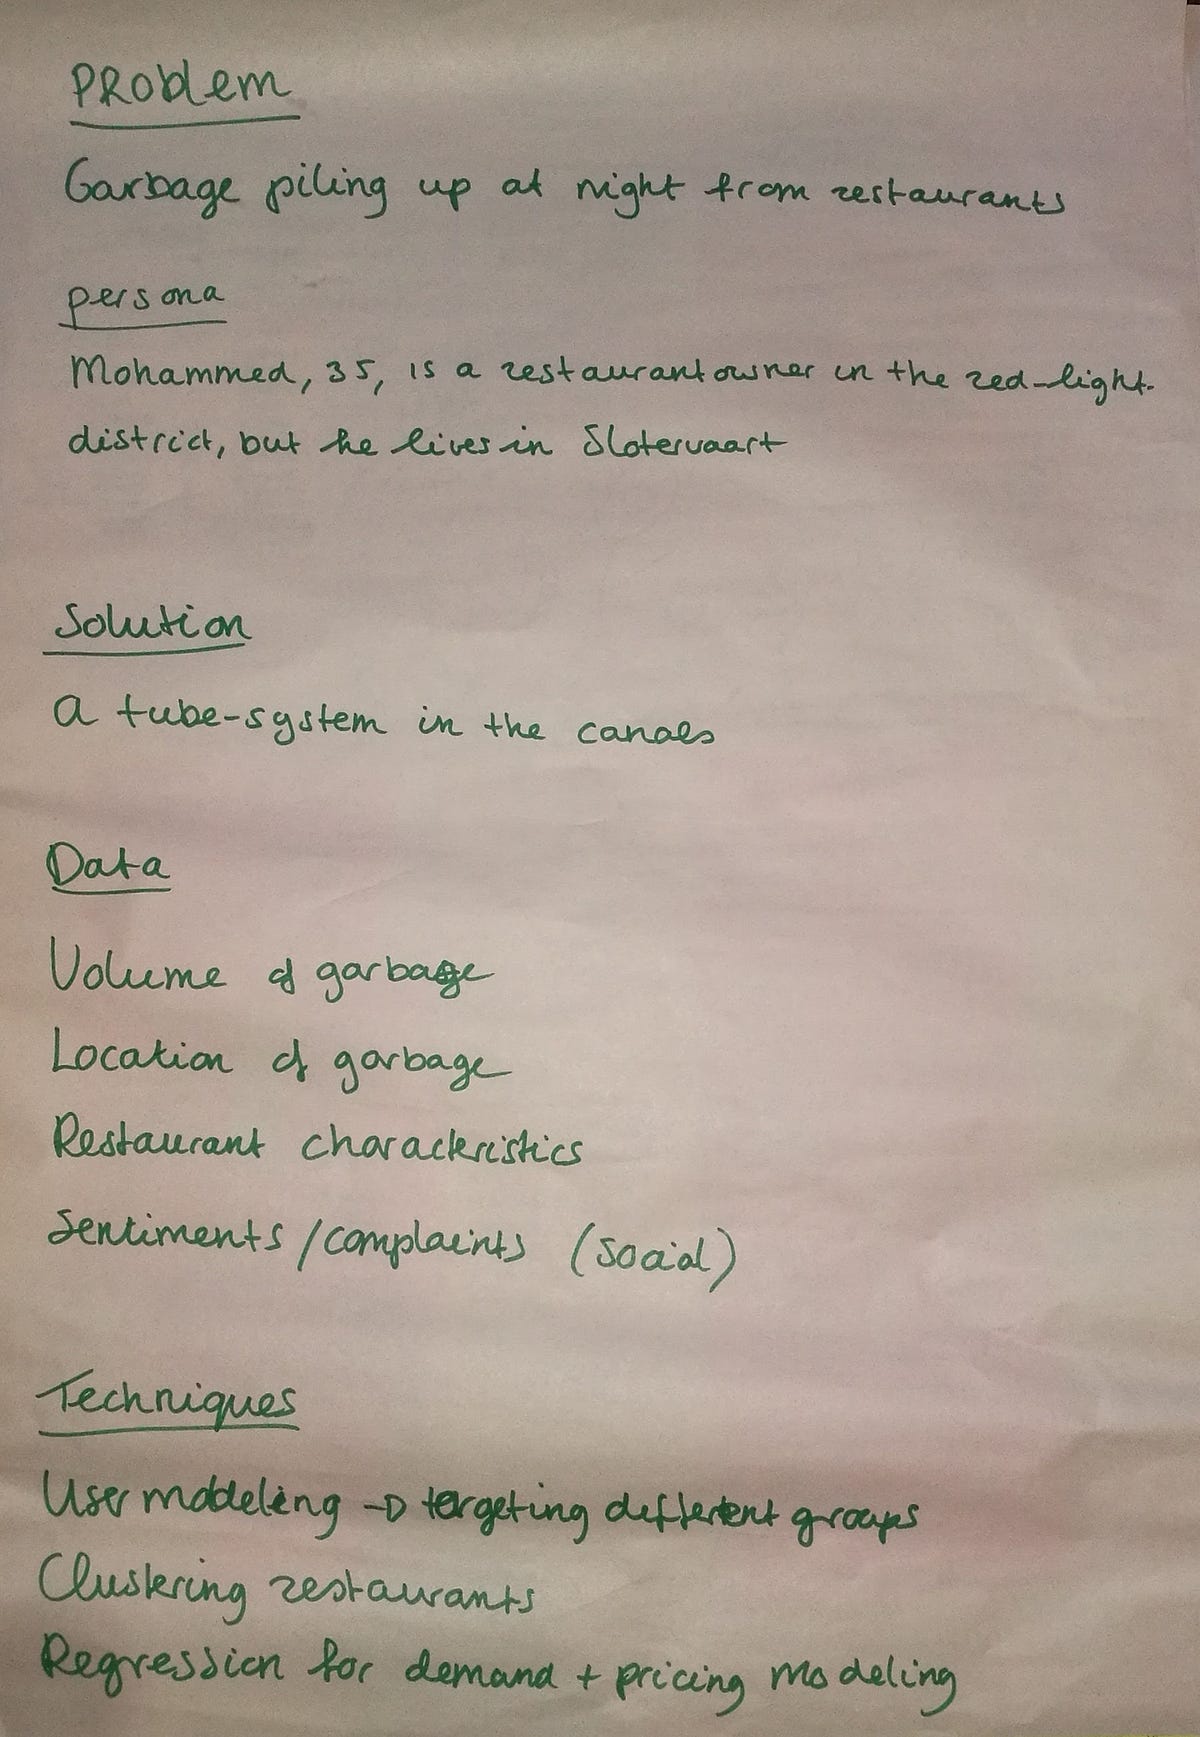 PRoblem
Garbage piling up at night from restaurants
persona
Mohammed, 35, is a restaurantowner in the red-light-
district, but he lives in Slotervaart
Solution
a tube-system in the canals
Data
Volume of garbage
Location of garbage
Restaurant characteristics
Sentiments/complaints (social)
Techniques
User modeling → targeting different groups
Clustering restaurants
Regression for demand + pricing modeling